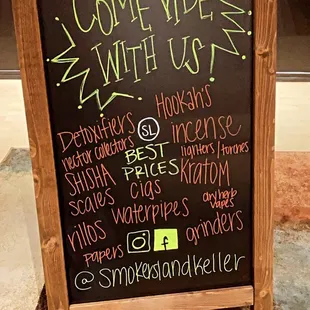 COME VIBE
WITH US
Hookah's
Detoxifiers
SL
incense
nectur collectors
lighters/torches
BEST
PRICES
SHISHA
Kratom
scales
cigs
dry herb
vapes
waterpipes
rillos
grinders
papers
f
@smokerslandkeller